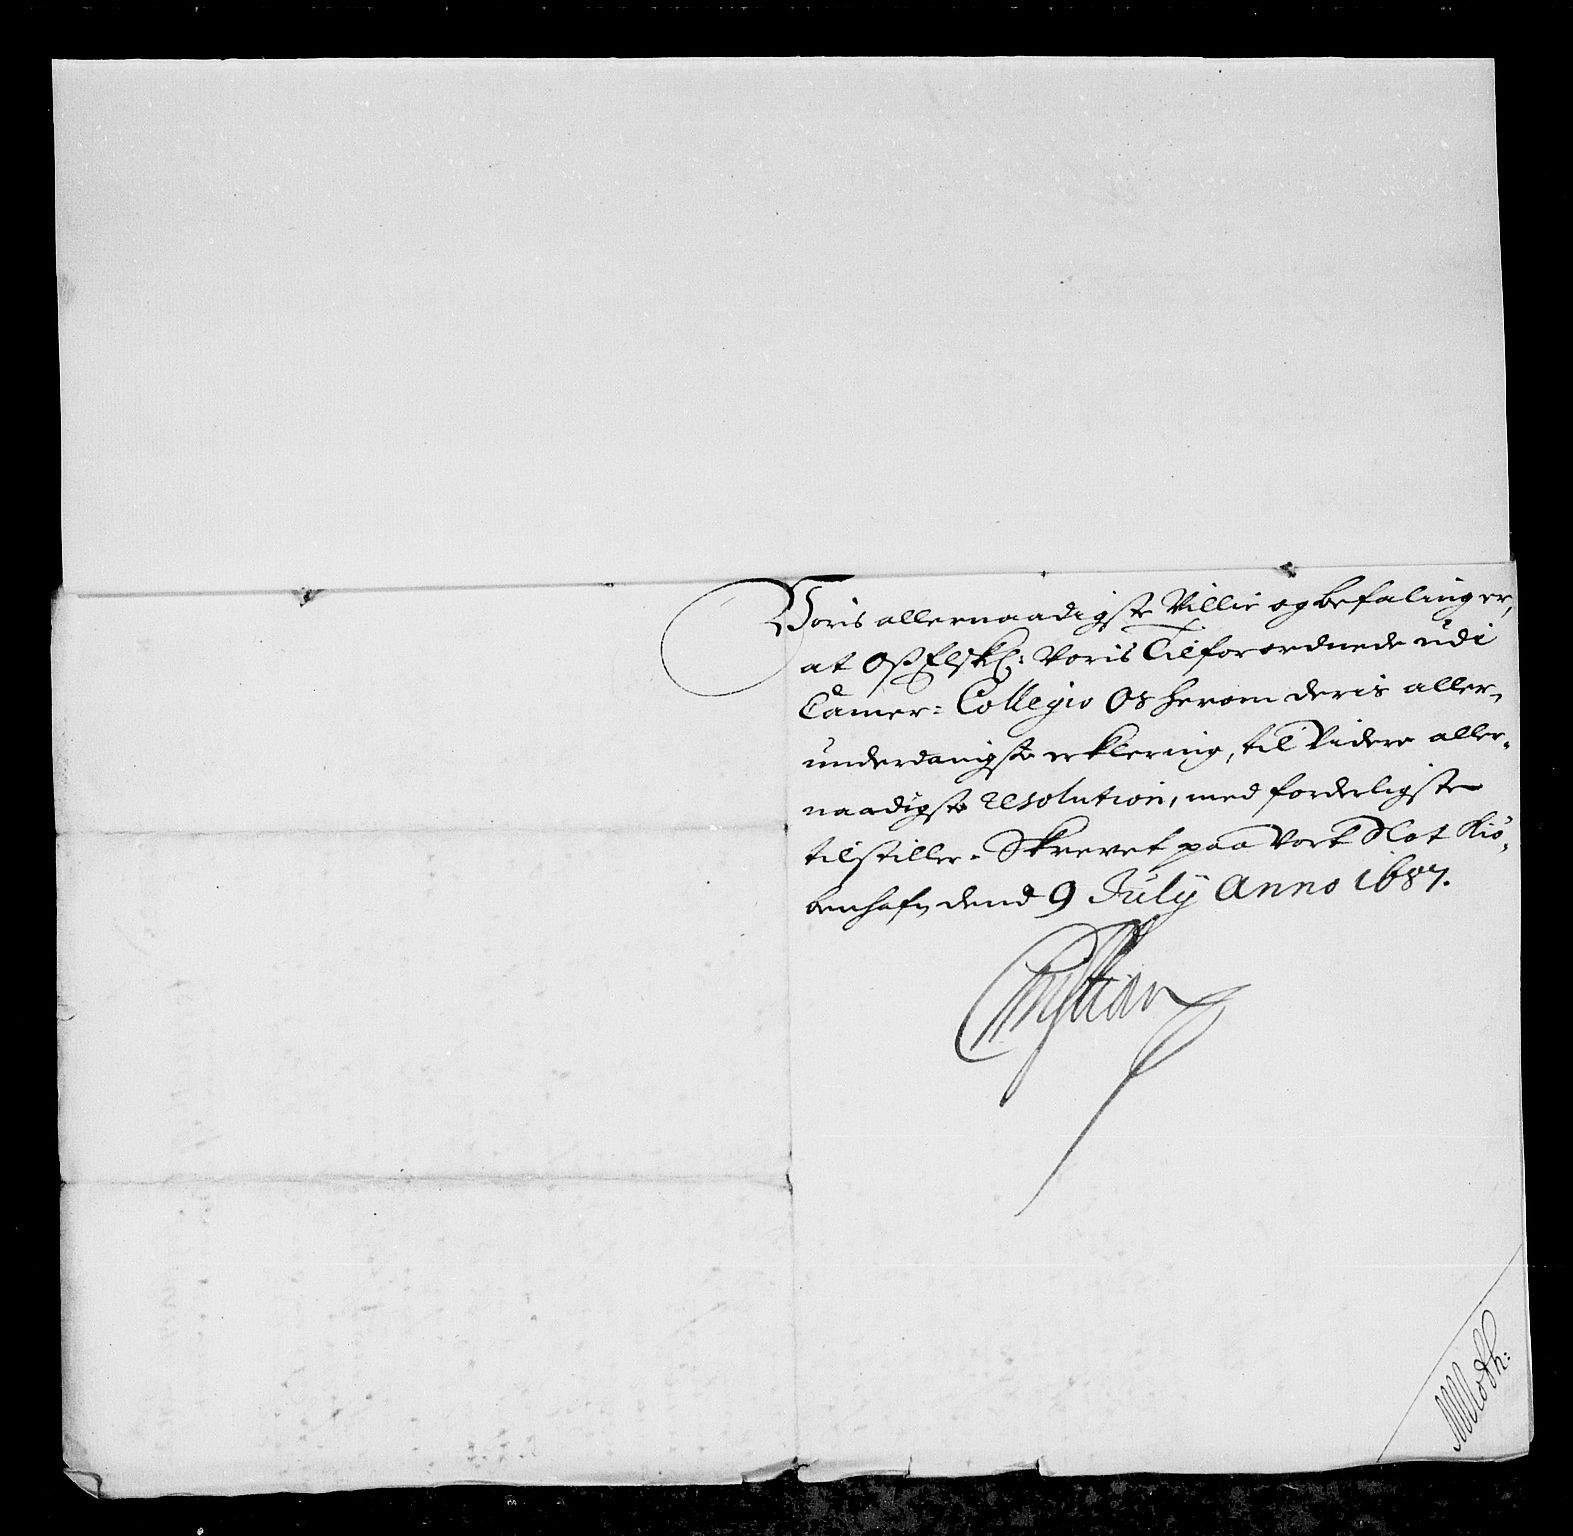 Voris allernaadigste Villie og befaling er,
at Oß Elskl: Voris Tilforordnede udi
Camer= Collegio Os herom deris aller-
underdanigste erklering, til Videre aller-
naadigste resolution, med forderligste
tilstiller. Skrevet paa Vort Slot Kiø-
benhafn dend 9 July Anno 1687.
Christian
MMoth: